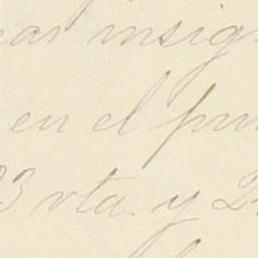 mas insig
en el pun
23 vta. y 2